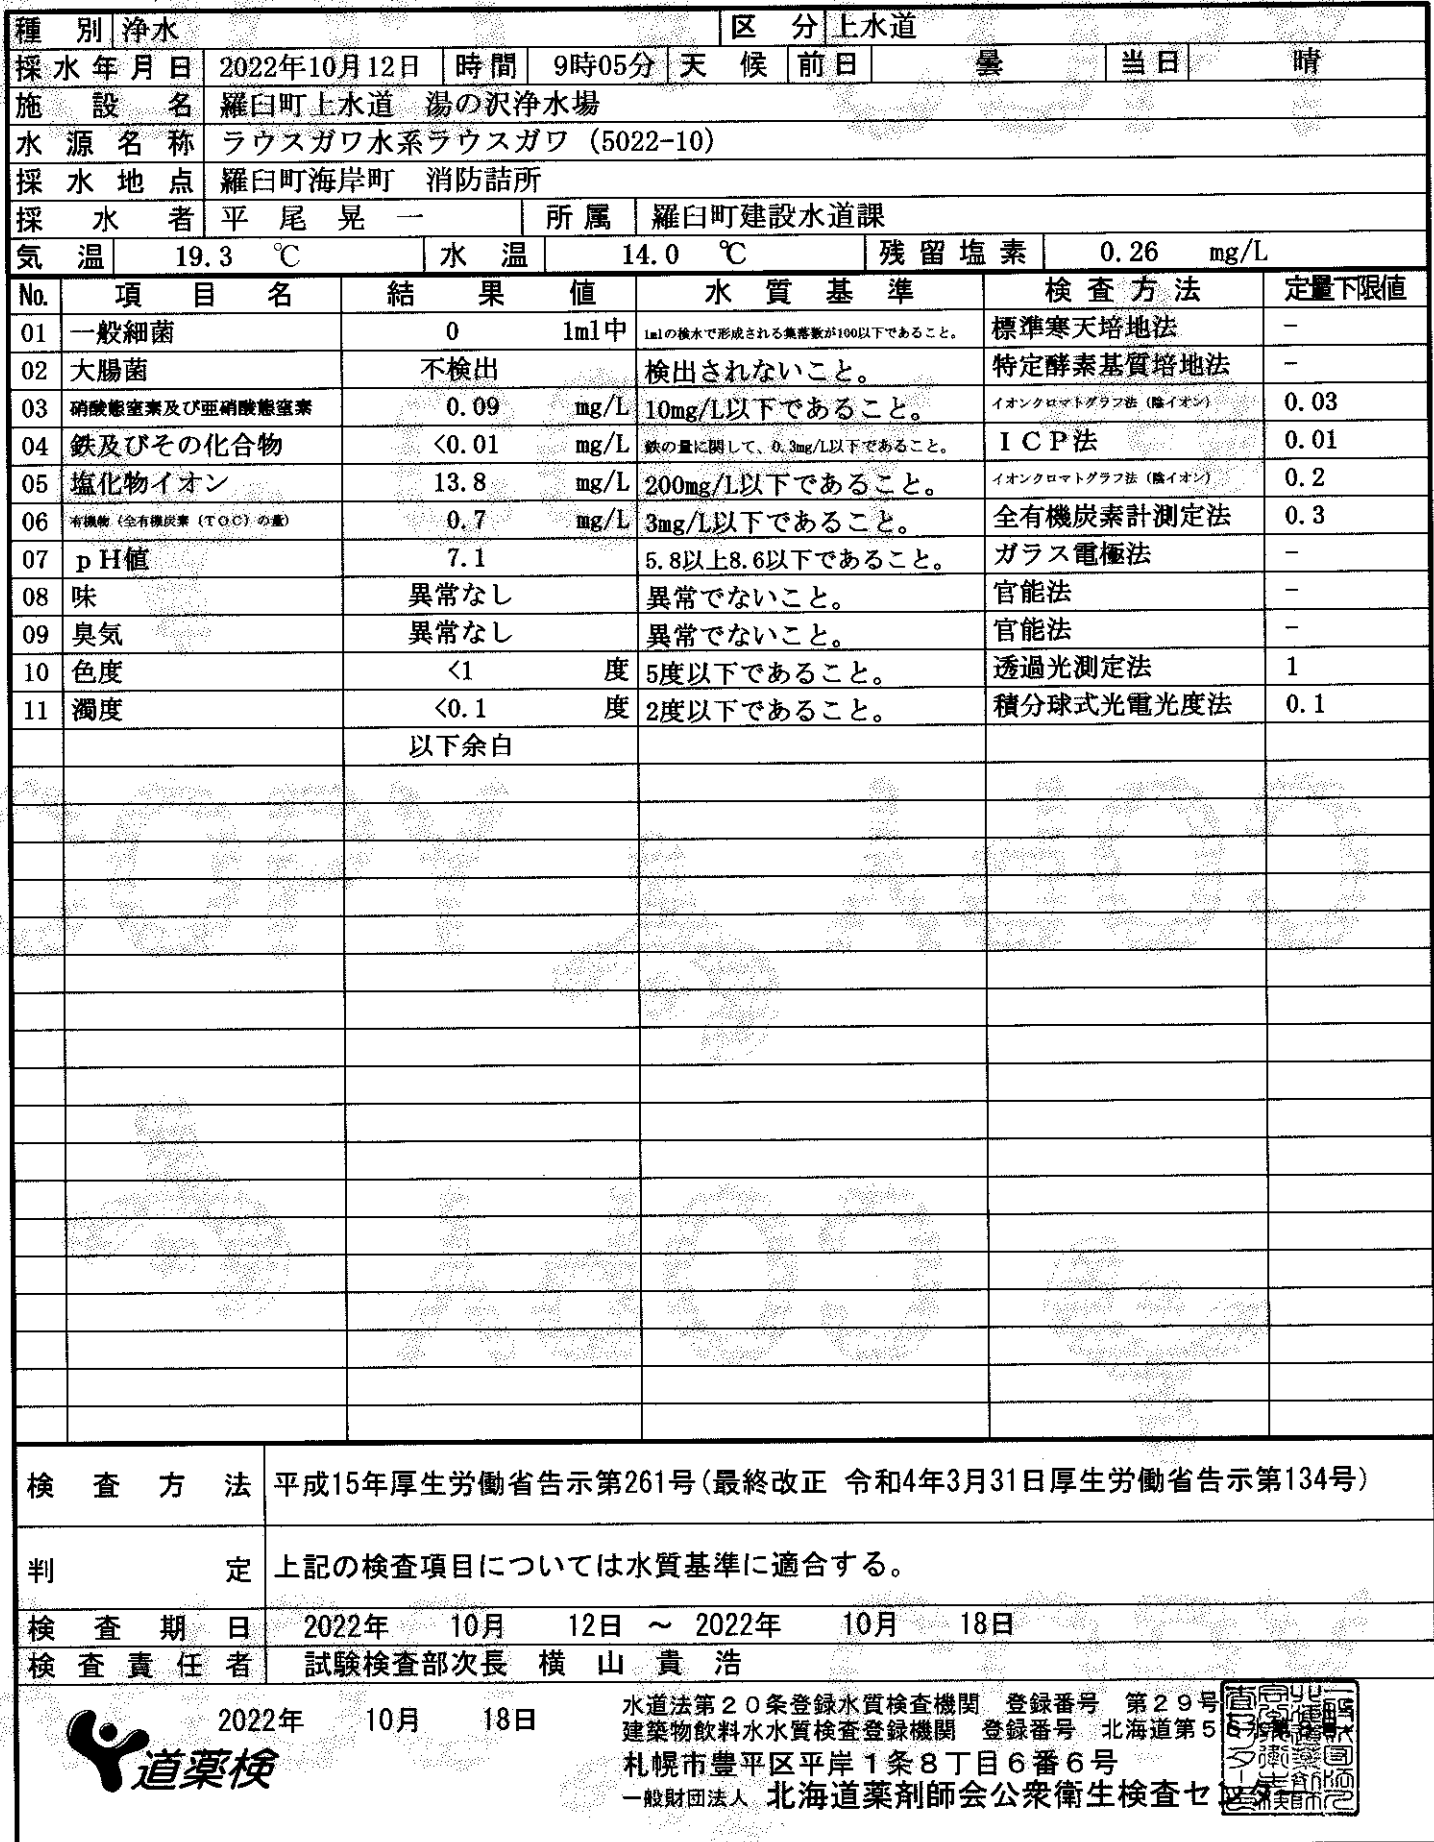 種別 浄水 区分 上水道
採水年月日 2022年10月12日 時間 9時05分 天候 前日 曇 当日 晴
施設名 羅臼町上水道 湯の沢浄水場
水源名称 ラウスガワ水系ラウスガワ (5022-10)
採水地点 羅臼町海岸町 消防詰所
採水者 平尾晃一 所属 羅臼町建設水道課
気温 19.3 ℃ 水温 14.0 ℃ 残留塩素 0.26 mg/L
No. 項目名 結果値 水質基準 検査方法 定量下限値
01 一般細菌 0 1ml中 1mlの検水で形成される集落数が100以下であること。 標準寒天培地法 -
02 大腸菌 不検出 検出されないこと。 特定酵素基質培地法 -
03 硝酸態窒素及び亜硝酸態窒素 0.09 mg/L 10mg/L以下であること。 イオンクロマトグラフ法(陰イオン) 0.03
04 鉄及びその化合物 <0.01 mg/L 鉄の量に関して、0.3mg/L以下であること。 ICP法 0.01
05 塩化物イオン 13.8 mg/L 200mg/L以下であること。 イオンクロマトグラフ法(陰イオン) 0.2
06 有機物(全有機炭素(TOC)の量) 0.7 mg/L 3mg/L以下であること。 全有機炭素計測定法 0.3
07 pH値 7.1 5.8以上8.6以下であること。 ガラス電極法 -
08 味 異常なし 異常でないこと。 官能法 -
09 臭気 異常なし 異常でないこと。 官能法 -
10 色度 <1 度 5度以下であること。 透過光測定法 1
11 濁度 <0.1 度 2度以下であること。 積分球式光電光度法 0.1
以下余白
検査方法 平成15年厚生労働省告示第261号(最終改正 令和4年3月31日厚生労働省告示第134号)
判定 上記の検査項目については水質基準に適合する。
検査期日 2022年 10月 12日 ～ 2022年 10月 18日
検査責任者 試験検査部次長 横山貴浩
2022年 10月 18日
道薬検
水道法第20条登録水質検査機関 登録番号 第29号
建築物飲料水水質検査登録機関 登録番号 北海道第5
札幌市豊平区平岸1条8丁目6番6号
一般財団法人 北海道薬剤師会公衆衛生検査センター
COPY